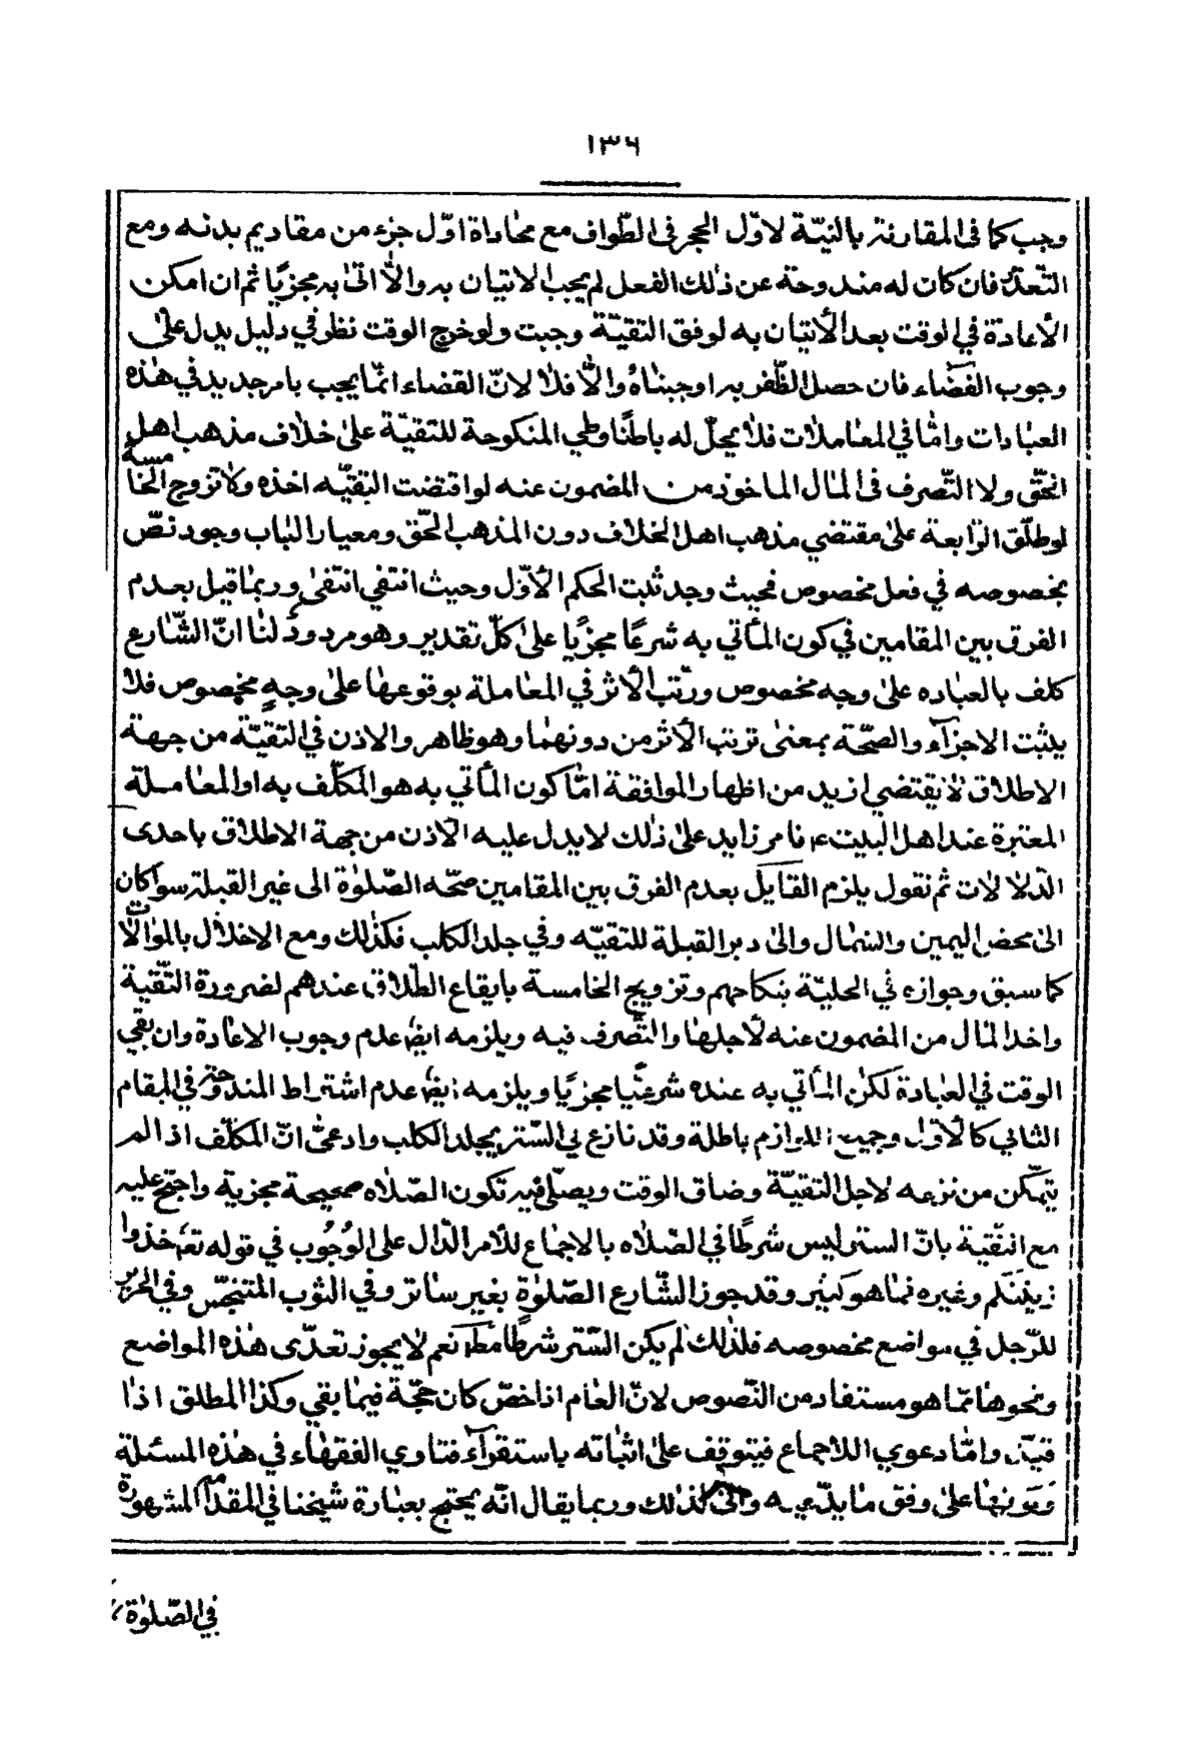 ١٣٦
وجب كما فى المقارنة بالنيّة لاوّل الحجر فى الطّواف مع محاذاة اوّل جزء من مقاديم بدنه ومع
التّعذّر فان كان له مندوحة عن ذلك الفعل لم يجب الاتيان به والّا اتى به مجزيًا ثم ان امكن
الأعادة في الوقت بعد الأتيان به لوفق التقيّة وجبت ولو خرج الوقت نظر في دليل يدل على
وجوب القضاء فان حصل الظّفر به اوجبناه والّا فلا لانّ القضاء انّما يجب بامر جديد في هذه
العبادات وامّا في المعاملات فلا يحلّ له باطنًا وطي المنكوحة للتقيّة على خلاف مذهب اهل
الحقّ ولا التّصرف فى المال الماخوذ من المضمون عنه لو اقتضت التقيّه اخذه ولا تزوج الخامسة
لو طلّق الرّابعة على مقتضي مذهب اهل الخلاف دون المذهب الحّق ومعيار الباب وجود نصّ
بخصوصه في فعل مخصوص فحيث وجد ثبت الحكم الأوّل وحيث انتفي انتفى وربما قيل بعدم
الفرق بين المقامين في كون المأتي به شرعًا مجزيًا على كلّ تقدير وهو مردود لنا انّ الشّارع
كلف بالعباده على وجه مخصوص ورتّب الأثر في المعاملة بوقوعها على وجهٍ مخصوص فلا
يثبت الاجزآء والصحّة بمعنى ترتب الأثر من دونهما وهو ظاهر والاذن في التقيّة من جهة
الاطلاق لا يقتضي ازيد من اظهار الموافقة امّا كون المأتي به هو المكلّف به او المعاملة
المعتبرة عند اهل البيت ع فامر زايد على ذلك لا يدل عليه الاذن من جهة الاطلاق باحدى
الدّلالات ثم نقول يلزم القايل بعدم الفرق بين المقامين صحّه الصّلوة الى غير القبلة سوا كان
الى محض اليمين والشمال والى دبر القبلة للتقيّه وفي جلد الكلب فكذلك ومع الاخلال بالموالات
كما سبق وجوازه في الحليّة بنكاحهم وتزويج الخامسة بايقاع الطّلاق عندهم لضرورة التّقية
واخذ المال من المضمون عنه لأجلها والتّصرف فيه ويلزمه ايضا عدم وجوب الاعادة وان بقي
الوقت في العبادة لكن المأتي به عنده شرعيًّا مجزيًا ويلزمه ايضا عدم اشتراط المندوحة في المقام
الثاني كالأوّل وجميع اللوازم باطلة وقد نازع في السّتر بجلد الكلب وادعى انّ المكلّف اذا لم
يتمكّن من نزعه لاجل التقيّة وضاق الوقت ويصلّي فيه تكون الصّلاه صحيحة مجزية واحتج عليه
مع التّقية بانّ الستر ليس شرطًا في الصّلاه بالاجماع للأمر الدّال على الوُجُوب في قوله تع خذوا
زينتكم وغيره فما هو كثير وقد جوز الشّارع الصّلوة بغير ساتر وفي الثوب المتنجّس وفي الحرير
للرّجل في مواضع مخصوصه فلذلك لم يكن السّتر شرطًا مطلقا نعم لا يجوز تعدّى هذه المواضع
ونحوها ممّا هو مستفاد من النّصوص لانّ العام اذا خصّ كان حجّة فيما بقي وكذا المطلق اذا
قيّد وامّا دعوي اللاجماع فيتوقف على اثباته باستقرآء فتاوي الفقهاء في هذه المسئلة
على وفق ما يدّعيه وانّى لذلك وربما يقال انّه يحتج بعبارة شيخنا في المقدّمة المشهورة
في الصّلوة